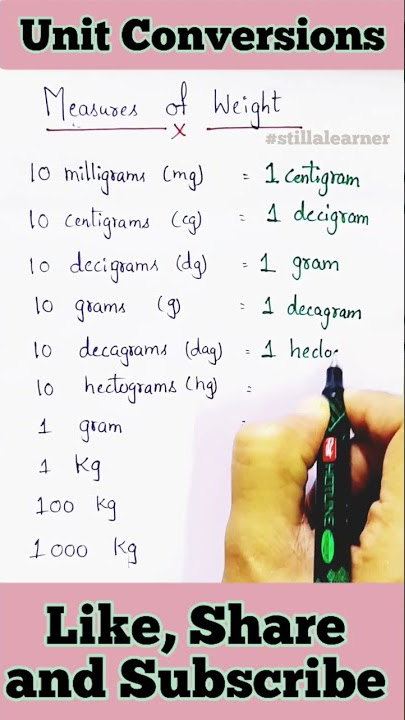 Unit Conversions
Measures of Weight
x
#stillalearner
10 milligrams (mg) = 1 centigram
10 centigrams (cg) = 1 decigram
10 decigrams (dg) = 1 gram
10 grams (g) = 1 decagram
10 decagrams (dag) = 1 hecto
10 hectograms (hg) =
1 gram
1 Kg
100 kg
1000 kg
HOTLINE
Like, Share
and Subscribe